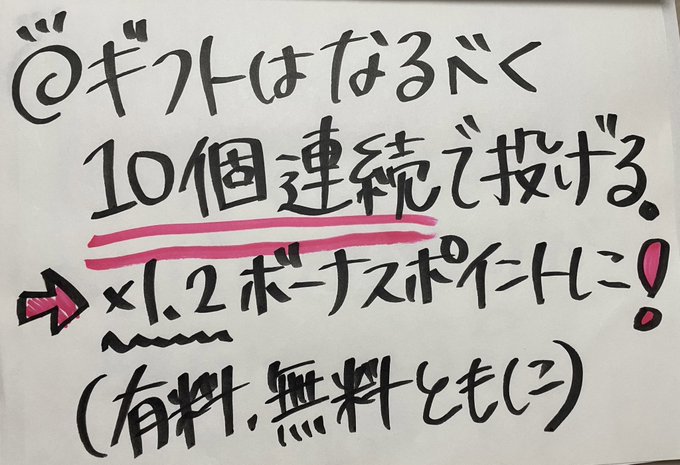 @ギフトはなるべく
10個連続で投げる.
➡×1.2ボーナスポイントに!
(有料.無料ともに)